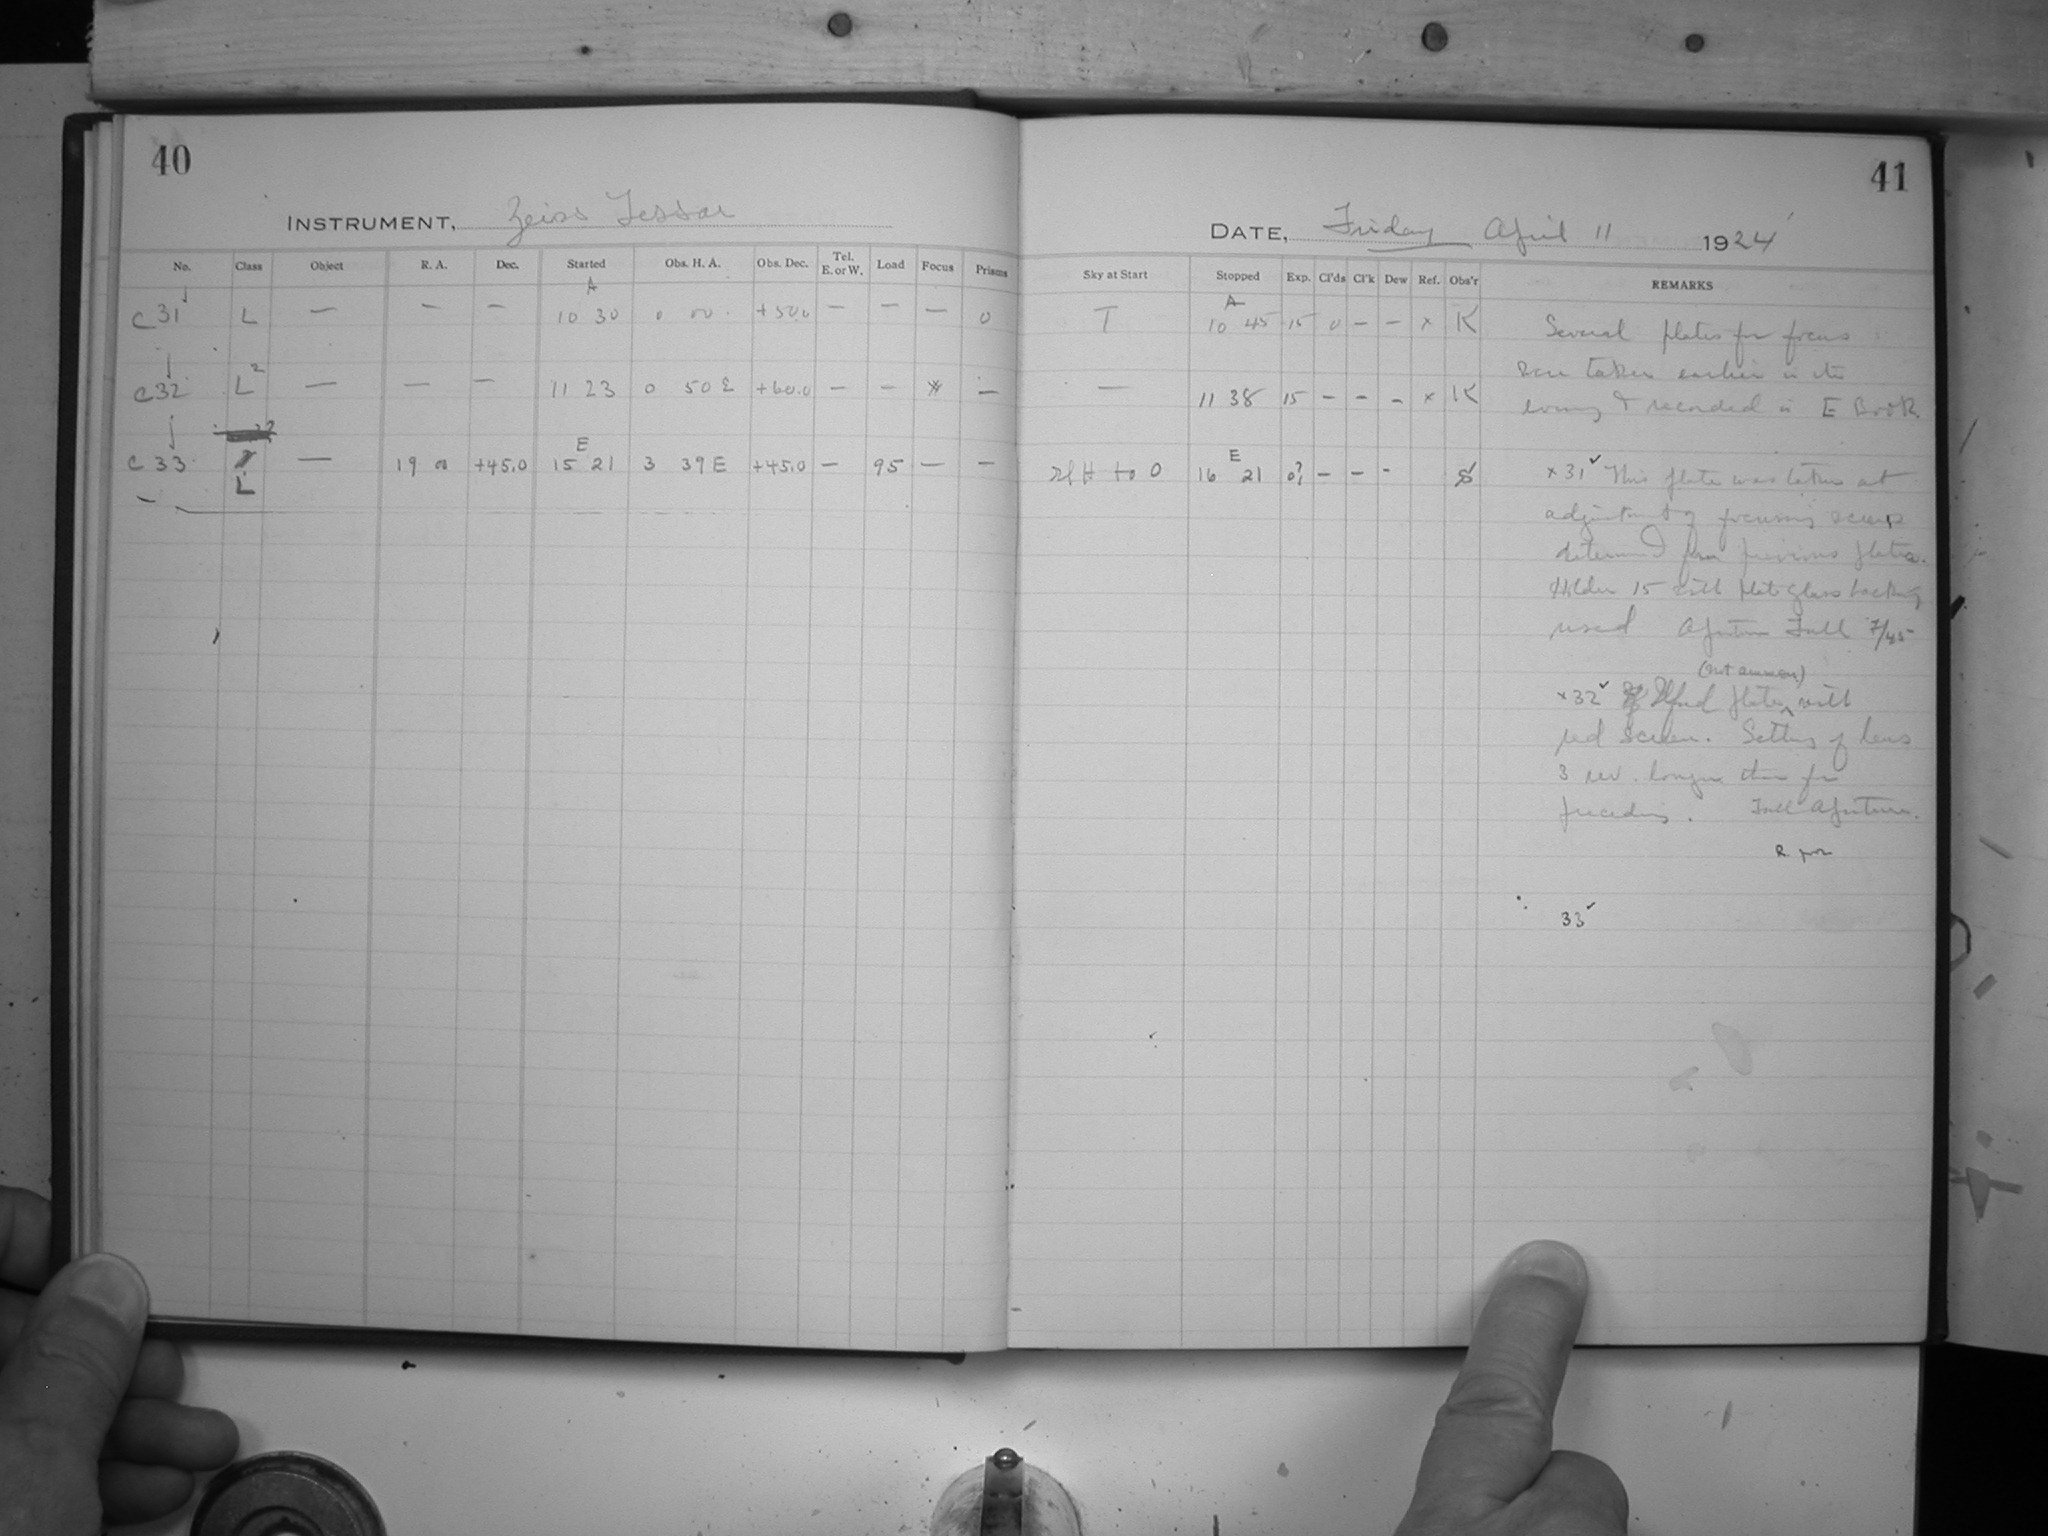 40
INSTRUMENT, Zeiss Tessar
No. Class Object R. A. Dec. Started Obs. H. A. Obs. Dec. Tel. E. or W. Load Focus Prisms
A
c 31 L — — — 10 30 0 00 +50.0 — — — 0
c 32 L2 — — — 11 23 0 50 E +60.0 — — * —
E
c 33 — 19 00 +45.0 15 21 3 39 E +45.0 — 95 — —
L
41
DATE, Friday April 11 1924
Sky at Start Stopped Exp. Cl'ds Cl'k Dew Ref. Obs'r REMARKS
A
T 10 45 15 0 — — x K
— 11 38 15 - - - x K
E
to 0 16 21 0? - - -
Several plates for focus
were taken earlier in the
evening & recorded in E Book.
x 31 ✓ This plate was taken at
adjustment of focussing screw
determined from previous plates.
Holder 15 with plate glass backing
used Aperture Full 7/45
(not ammon.)
x 32 ✓ Ilford plates with
red screen. Setting of lens
3 rev. longer than for
preceding. Full Aperture.
33 ✓